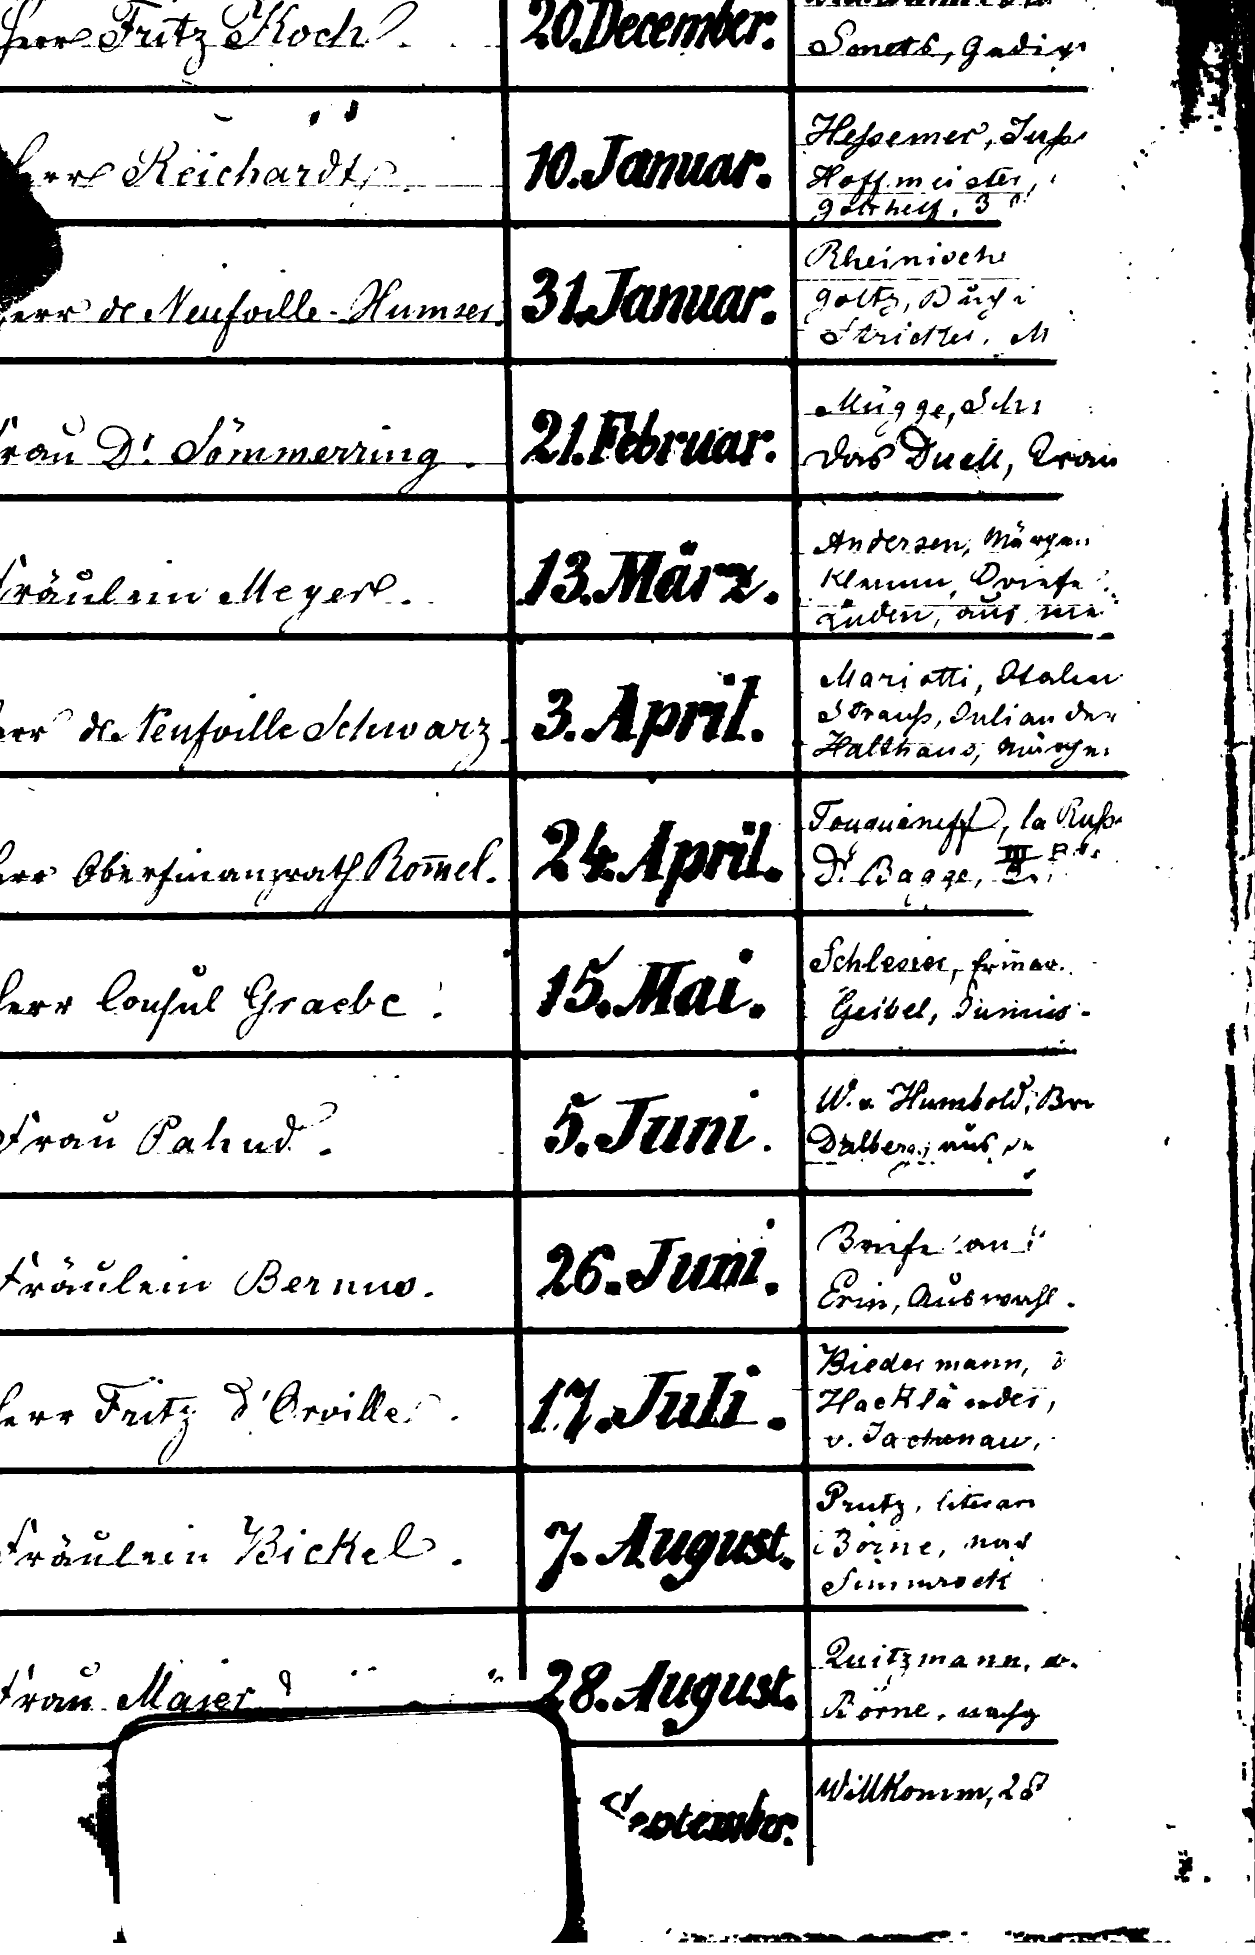 Herr Fritz Koch. 20. December.
Herr Reichardt. 10. Januar. Hessemer,
Hoffmeister,
Gotthelf, 3
Herr de Neufville-Humser. 31. Januar. Rheinische
Goltz,
Stricker. M
Frau Dr. Sömmerring. 21. Februar. Mügge, Sch
das Duell,
Fräulein Meyer. 13. März. Andersen, Märchen
Klemm, Briefe
Linden, aus
Herr de Neufville Schwarz. 3. April. Mariotti, Italien
Strauss, Julian der
Halthaus, Märchen
Herr Oberfinanzrath Rom̄el. 24. April. Tourguéneff, la Russ
Dr. Bagge, III
Herr Consul Graebe. 15. Mai. Schlesier,
Geibel, Junius-
Frau Pahud. 5. Juni. W. v. Humbold, Br
Dalberg, aus
Fräulein Bernus. 26. Juni. Briefe an
Erin, Auswahl.
Herr Fritz d'Orville. 17. Juli. Biedermann,
Hackländer,
v.
Fräulein Bickel. 7. August. Prutz, literar
Börne,
Simmrock
Frau Majer 28. August. Quitzmann,
Börne, nachg
September. Willkomm,